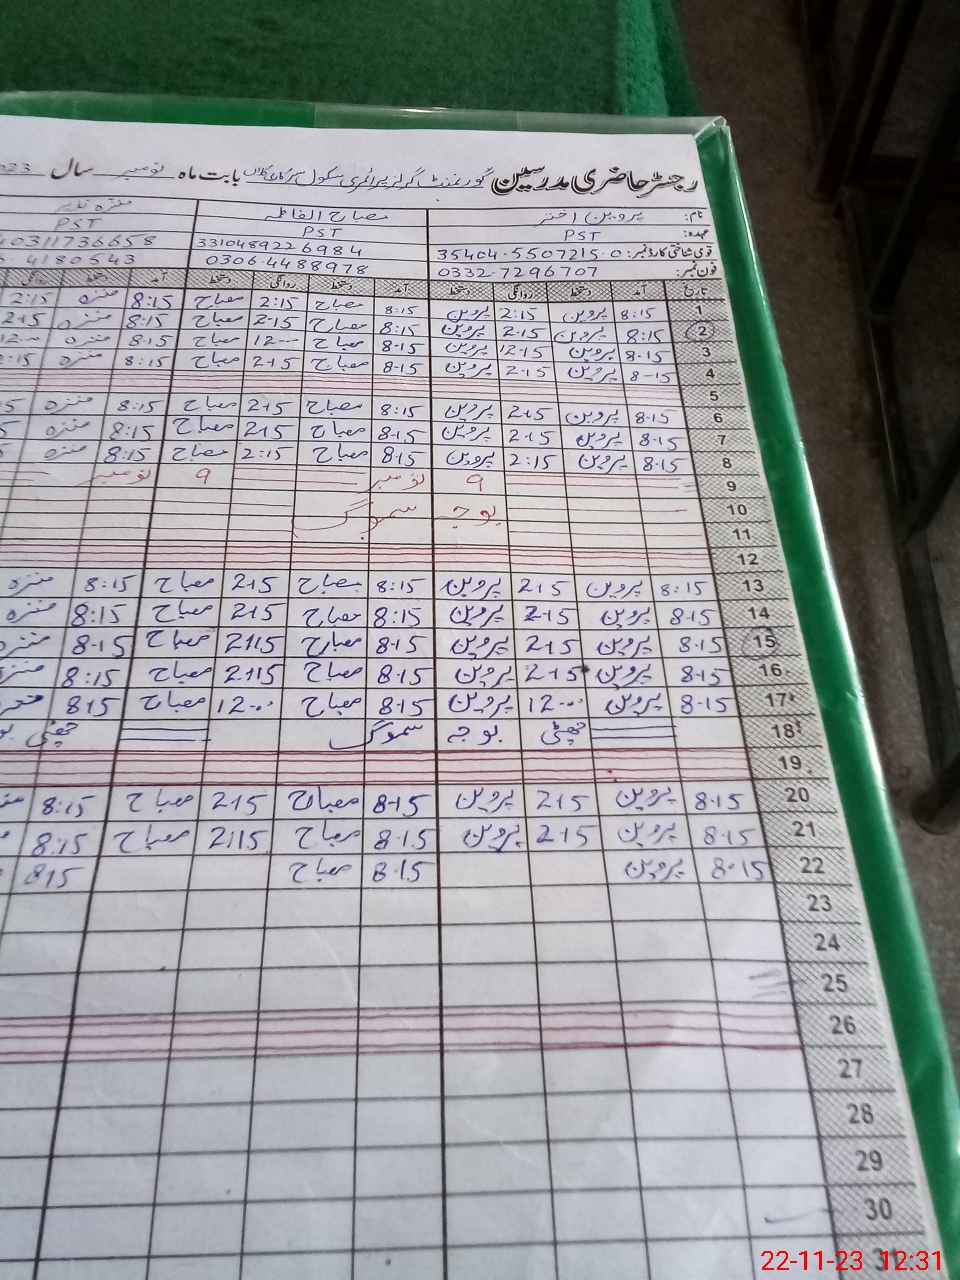 رجسٹر حاضری مدرسین گورنمنٹ گرلز پرائمری سکول بابت ماہ نومبر سال 023
نام: پروین اختر مصباح الفاطمہ
عہدہ: PST PST PST
قومی شناختی کارڈ نمبر: 35404-5507215-0 3310489226984 40311736658
فون نمبر: 0332-7296707 0306-4488978 4180543
تاریخ آمد دستخط روانگی دستخط آمد دستخط روانگی دستخط آمد دستخط روانگی
1 8:15 پروین 2:15 پروین 8:15 مصباح 2:15 مصباح 8:15 منزہ 2:15
2 8:15 پروین 2-15 پروین 8:15 مصباح 2-15 مصباح 8:15 منزہ 2-15
3 8-15 پروین 12-15 پروین 8-15 مصباح 12-00 مصباح 8-15 منزہ
4 8-15 پروین 2-15 پروین 8-15 مصباح 2-15 مصباح 8:15 منزہ
5
6 8-15 پروین 2-15 پروین 8:15 مصباح 2-15 مصباح 8:15 منزہ
7 8-15 پروین 2-15 پروین 8-15 مصباح 2-15 مصباح 8:15 منزہ
8 8-15 پروین 2:15 پروین 8-15 مصباح 2:15 مصباح 8:15 منزہ
9 9 نومبر 9 نومبر
10 بوجہ سموگ
11
12
13 8:15 پروین 2-15 پروین 8:15 مصباح 2-15 مصباح 8:15 منزہ
14 8-15 پروین 2-15 پروین 8:15 مصباح 2-15 مصباح 8:15 منزہ
15 8-15 پروین 2-15 پروین 8-15 مصباح 2:15 مصباح 8-15 منزہ
16 8-15 پروین 2-15 پروین 8-15 مصباح 2:15 مصباح 8:15
17 8-15 پروین 12-00 پروین 8-15 مصباح 12-00 مصباح 8:15
18 چھٹی بوجہ سموگ چھٹی
19
20 8-15 پروین 2-15 پروین 8-15 مصباح 2-15 مصباح 8:15
21 8-15 پروین 2-15 پروین 8-15 مصباح 2:15 مصباح 8:15
22 8-15 پروین 8-15 مصباح 815
23
24
25
26
27
28
29
30
31
22-11-23 12:31